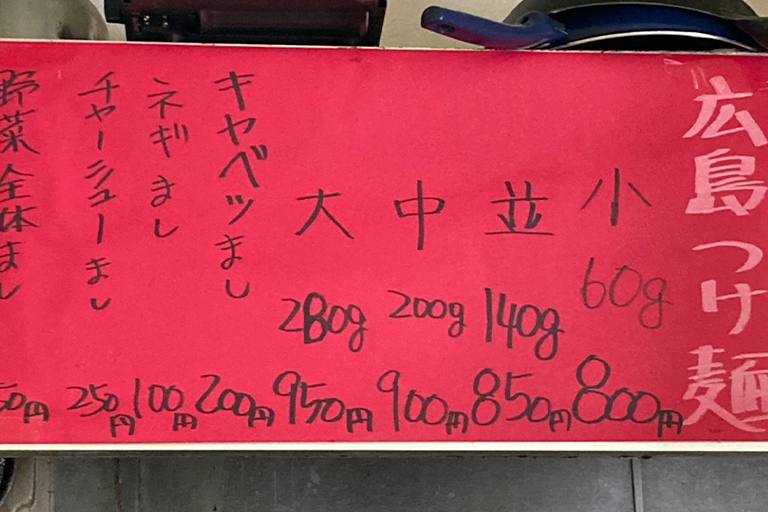 広島つけ麺
小 60g 800円
並 140g 850円
中 200g 900円
大 280g 950円
キャベツまし 200円
ネギまし 100円
チャーシューまし 250円
野菜全体まし 50円